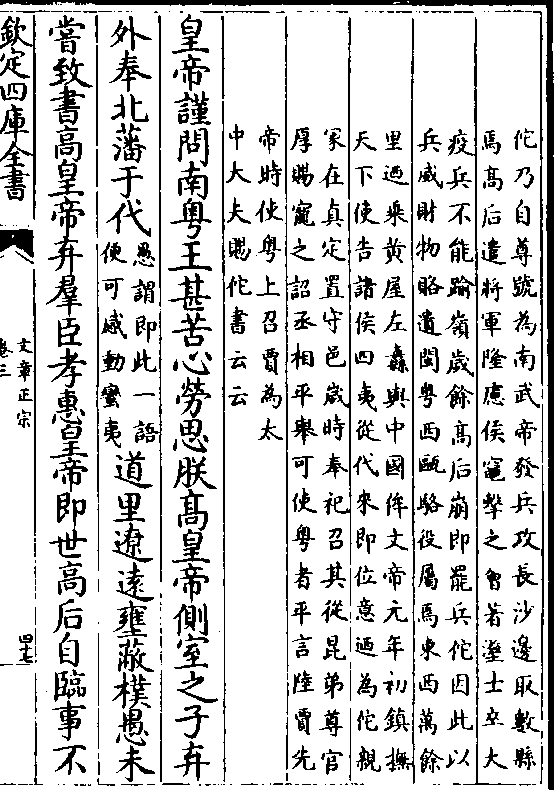 佗乃自尊號為南武帝發兵攻長沙邊取數縣
焉高后遣將軍隆慮侯竈擊之會暑溼士卒大
疫兵不能踰嶺歲餘高后崩即罷兵佗因此以
兵威財物賂遺閩粤西甌駱役屬焉東西萬餘
里迺乘黄屋左纛與中國侔文帝元年初鎮撫
天下使告諸侯四夷從代來即位意迺為佗親
冢在真定置守邑歲時奉祀召其從昆弟尊官
厚賜寵之詔丞相平舉可使粤者平言陸賈先
帝時使粤上召賈為太
中大夫賜佗書云云
皇帝謹問南粤王甚苦心勞思朕高皇帝側室之子弃
外奉北藩于代愚謂即此一語便可感動蠻夷道里遼遠壅蔽樸愚未
嘗致書高皇帝弃羣臣孝惠皇帝即世高后自臨事不
欽定四庫全書
文章正宗
卷三
四十七